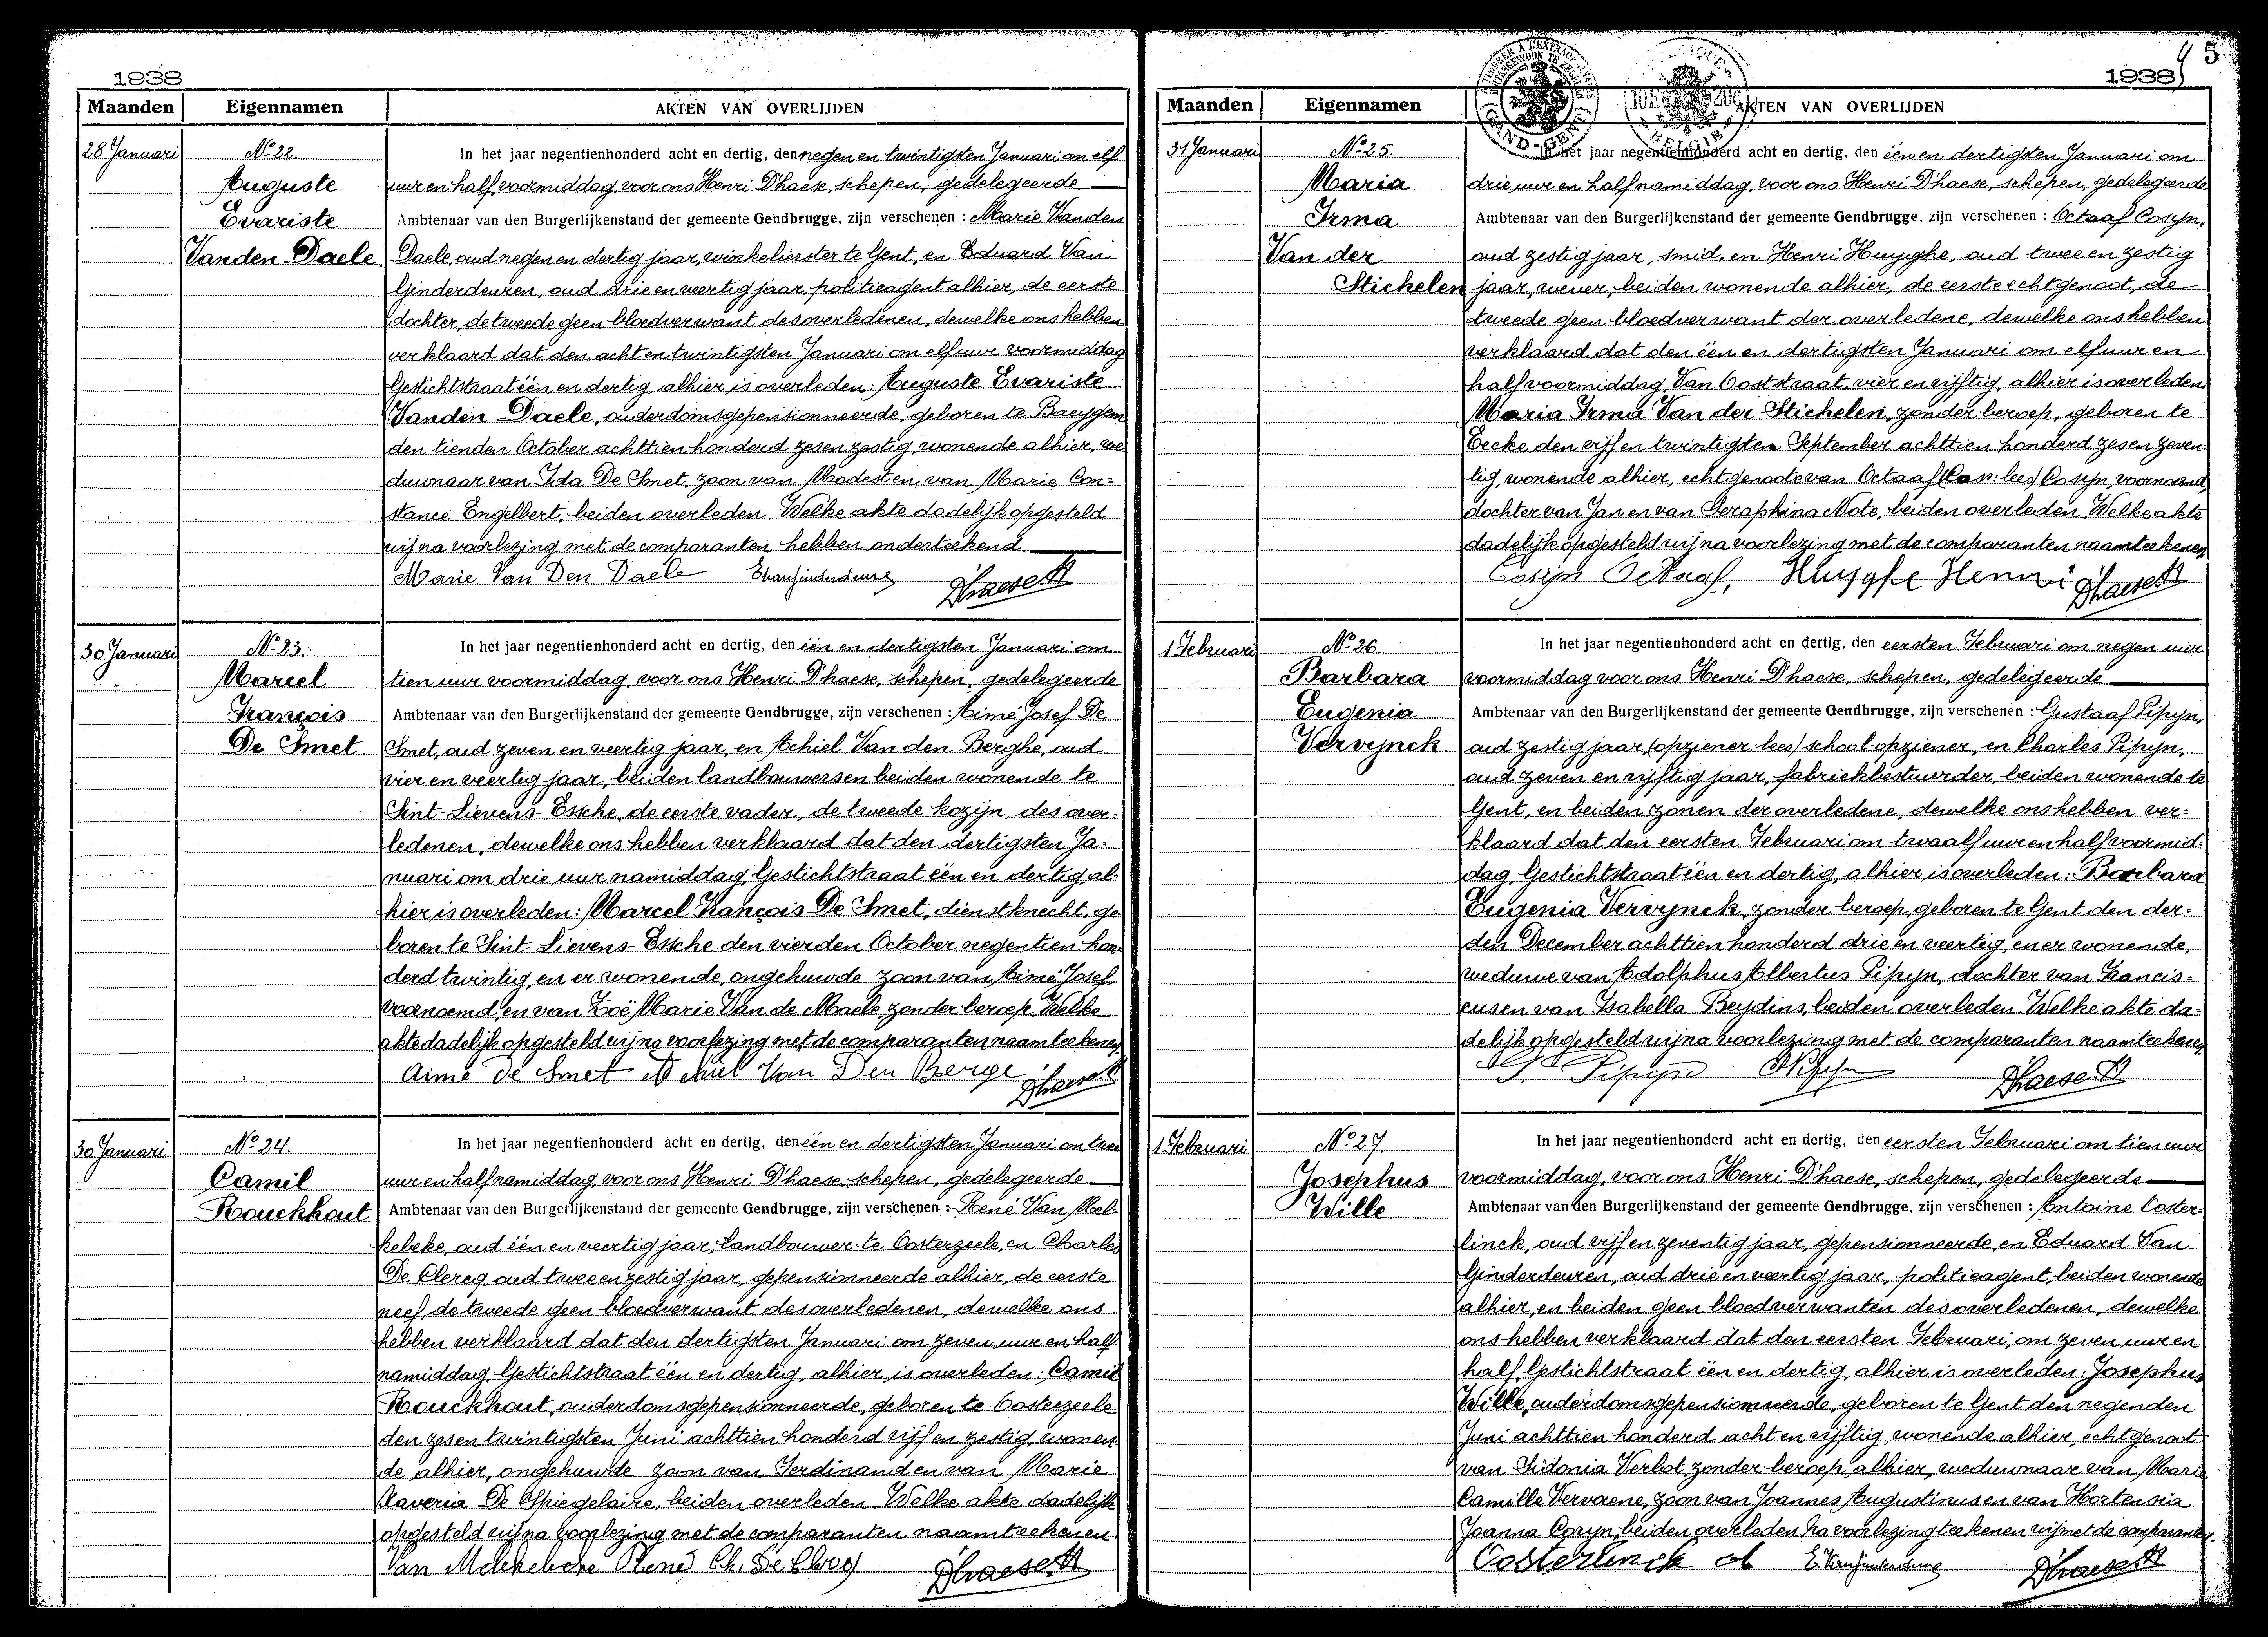 1938
Maanden Eigennamen AKTEN VAN OVERLIJDEN
28 Januari
No 22.
Auguste
Evariste
Vanden Daele
In het jaar negentienhonderd acht en dertig, den negen en twintigsten Januari om elf
uur en half voormiddag, voor ons Henri D'haese, schepen, gedelegeerde
Ambtenaar van den Burgerlijkenstand der gemeente Gendbrugge, zijn verschenen : Marie Vanden
Daele, oud negen en dertig jaar, winkelierster te Gent, en Eduard Van
Ginderdeuren, oud drie en veertig jaar, politieagent alhier, de eerste
dochter, de tweede geen bloedverwant des overledenen, dewelke ons hebben
verklaard dat den acht en twintigsten Januari om elf uur voormiddag
Gestichtstraat één en dertig, alhier is overleden: Auguste Evariste
Vanden Daele, ouderdomsgepensionneerde, geboren te Baeygem
den tienden October achttien honderd zes en zestig, wonende alhier, we-
duwnaar van Ida De Smet, zoon van Modest en van Marie Con=
stance Engelbert, beiden overleden. Welke akte dadelijk opgesteld
wij na voorlezing met de comparanten hebben onderteekend
Marie Van Den Daele E Vanginderdeuren D'haese H
30 Januari
No 23.
Marcel
François
De Smet
In het jaar negentienhonderd acht en dertig, den één en dertigsten Januari om
tien uur voormiddag, voor ons Henri D'haese, schepen, gedelegeerde
Ambtenaar van den Burgerlijkenstand der gemeente Gendbrugge, zijn verschenen : Aimé Josef De
Smet, oud zeven en veertig jaar, en Achiel Van den Berghe, oud
vier en veertig jaar, beiden landbouwers en beiden wonende te
Sint-Lievens-Essche, de eerste vader, de tweede kozijn des over-
ledenen, dewelke ons hebben verklaard dat den dertigsten Ja-
nuari om drie uur namiddag, Gestichtstraat één en dertig, al-
hier is overleden: Marcel François De Smet, dienstknecht, ge-
boren te Sint-Lievens-Essche den vierden October negentien hon-
derd twintig, en er wonende, ongehuwde zoon van Aimé Josef,
voornoemd, en van Zoë Marie Van de Maele, zonder beroep. Welke
akte dadelijk opgesteld wij na voorlezing met de comparanten naamteekenen.
Aimé De Smet Achiel Van Den Berge D'haese H
30 Januari
No 24.
Camil
Rouckhout
In het jaar negentienhonderd acht en dertig, den één en dertigsten Januari om twee
uur en half namiddag, voor ons Henri D'haese, schepen, gedelegeerde
Ambtenaar van den Burgerlijkenstand der gemeente Gendbrugge, zijn verschenen : René Van Mel-
kebeke, oud één en veertig jaar, landbouwer te Oosterzeele, en Charles
De Clercq, oud twee en zestig jaar, gepensionneerde alhier, de eerste
neef, de tweede geen bloedverwant des overledenen, dewelke ons
hebben verklaard dat den dertigsten Januari om zeven uur en half
namiddag, Gestichtstraat één en dertig, alhier is overleden: Camil
Rouckhout, ouderdomsgepensionneerde, geboren te Oosterzeele
den zes en twintigsten Juni achttien honderd vijf en zestig, wonen-
de alhier, ongehuwde zoon van Ferdinand en van Marie
Xaveria De Spiegelaire, beiden overleden. Welke akte dadelijk
opgesteld wij na voorlezing met de comparanten naamteekenen.
Van Melkebeke René Ch. De Clercq D'haese H
5
1938
Maanden Eigennamen AKTEN VAN OVERLIJDEN
GAND-GENT
BELGIE
31 Januari
No 25.
Maria
Irma
Van der
Stichelen
In het jaar negentienhonderd acht en dertig, den één en dertigsten Januari om
drie uur en half namiddag, voor ons Henri D'haese, schepen, gedelegeerde
Ambtenaar van den Burgerlijkenstand der gemeente Gendbrugge, zijn verschenen : Octaaf Cosyn,
oud zestig jaar, smid, en Henri Huyghe, oud twee en zestig
jaar, wever, beiden wonende alhier, de eerste echtgenoot, de
tweede geen bloedverwant der overledene, dewelke ons hebben
verklaard dat den één en dertigsten Januari om elf uur en
half voormiddag, Van Ooststraat, vier en vijftig, alhier is overleden
Maria Irma Van der Stichelen, zonder beroep, geboren te
Eecke den vijf en twintigsten September achttien honderd zes en zeven-
tig, wonende alhier, echtgenoote van Octaaf (Cos: lees) Cosyn, voornoemd,
dochter van Jan en van Seraphina Note, beiden overleden. Welke akte
dadelijk opgesteld wij na voorlezing met de comparanten naamteekenen.
Cosyn Octaaf, Huyghe Henri D'haese H
1 Februari
No 26.
Barbara
Eugenia
Vervynck
In het jaar negentienhonderd acht en dertig, den eersten Februari om negen uur
voormiddag voor ons Henri D'haese, schepen, gedelegeerde
Ambtenaar van den Burgerlijkenstand der gemeente Gendbrugge, zijn verschenen : Gustaaf Pipyn,
oud zestig jaar, (opziener: lees) schoolopziener, en Charles Pipyn,
oud zeven en vijftig jaar, fabriekbestuurder, beiden wonende te
Gent, en beiden zonen der overledene, dewelke ons hebben ver-
klaard dat den eersten Februari om twaalf uur en half voormid-
dag, Gestichtstraat één en dertig, alhier is overleden: Barbara
Eugenia Vervynck, zonder beroep, geboren te Gent den der-
den December achttien honderd drie en veertig, en er wonende,
weduwe van Adolphus Albertus Pipyn, dochter van Francis-
cus en van Isabella Beydins, beiden overleden. Welke akte da-
delijk opgesteld wij na voorlezing met de comparanten naamteekenen.
G. Pipyn Pipyn D'haese H
1 Februari
No 27.
Josephus
Wille
In het jaar negentienhonderd acht en dertig, den eersten Februari om tien uur
voormiddag, voor ons Henri D'haese, schepen, gedelegeerde
Ambtenaar van den Burgerlijkenstand der gemeente Gendbrugge, zijn verschenen : Antoine Ooster-
linck, oud vijf en zeventig jaar, gepensionneerde, en Eduard Van
Ginderdeuren, oud drie en veertig jaar, politieagent, beiden wonende
alhier, en beiden geen bloedverwanten des overledenen, dewelke
ons hebben verklaard dat den eersten Februari, om zeven uur en
half, Gestichtstraat één en dertig, alhier is overleden: Josephus
Wille, ouderdomsgepensionneerde, geboren te Gent den negenden
Juni achttien honderd acht en vijftig, wonende alhier, echtgenoot
van Sidonia Verbot, zonder beroep, alhier, weduwnaar van Marie
Camille Vervaene, zoon van Joannes Augustinus en van Hortensia
Joanna Coryn, beiden overleden. Na voorlezing teekenen wij met de comparanten.
Oosterlinck A E. Vanginderdeuren D'haese H